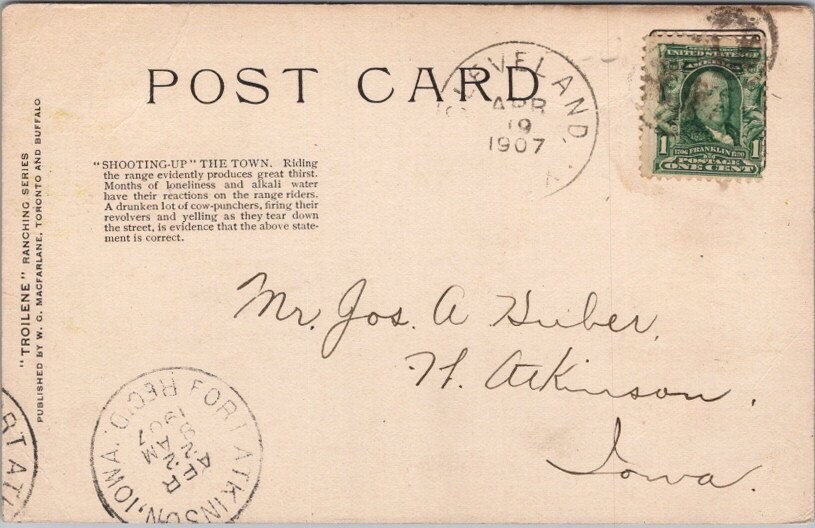 POST CARD
CLEVELAND,
APR
19
1907
UNITED STATES OF
AMERICA
1 FRANKLIN 1
POSTAGE
ONE CENT
"SHOOTING-UP" THE TOWN. Riding
the range evidently produces great thirst.
Months of loneliness and alkali water
have their reactions on the range riders.
A drunken lot of cow-punchers, firing their
revolvers and yelling as they tear down
the street, is evidence that the above state-
ment is correct.
"TROILENE" RANCHING SERIES
PUBLISHED BY W. G. MACFARLANE, TORONTO AND BUFFALO
Mr. Jos. A Huber,
Ft. Atkinson,
Iowa.
FORT ATKINSON, IOWA. REC'D.
1907
RT AT